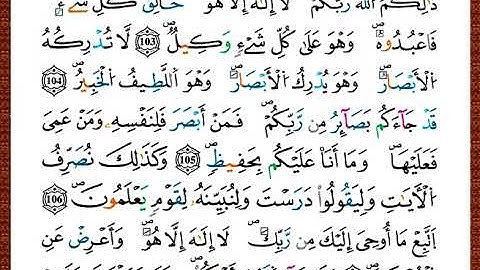 ذَٰلِكُمُ اللَّهُ رَبُّكُمْ ۖ لَا إِلَٰهَ إِلَّا هُوَ ۖ خَالِقُ كُلِّ شَيْءٍ
فَاعْبُدُوهُ ۚ وَهُوَ عَلَىٰ كُلِّ شَيْءٍ وَكِيلٌ ۝103 لَّا تُدْرِكُهُ
الْأَبْصَارُ ۖ وَهُوَ يُدْرِكُ الْأَبْصَارَ ۖ وَهُوَ اللَّطِيفُ الْخَبِيرُ ۝104
قَدْ جَاءَكُم بَصَائِرُ مِن رَّبِّكُمْ ۖ فَمَنْ أَبْصَرَ فَلِنَفْسِهِ ۖ وَمَنْ عَمِيَ
فَعَلَيْهَا ۚ وَمَا أَنَا عَلَيْكُم بِحَفِيظٍ ۝105 وَكَذَٰلِكَ نُصَرِّفُ
الْآيَاتِ وَلِيَقُولُوا دَرَسْتَ وَلِنُبَيِّنَهُ لِقَوْمٍ يَعْلَمُونَ ۝106
اتَّبِعْ مَا أُوحِيَ إِلَيْكَ مِن رَّبِّكَ ۖ لَا إِلَٰهَ إِلَّا هُوَ ۖ وَأَعْرِضْ عَنِ